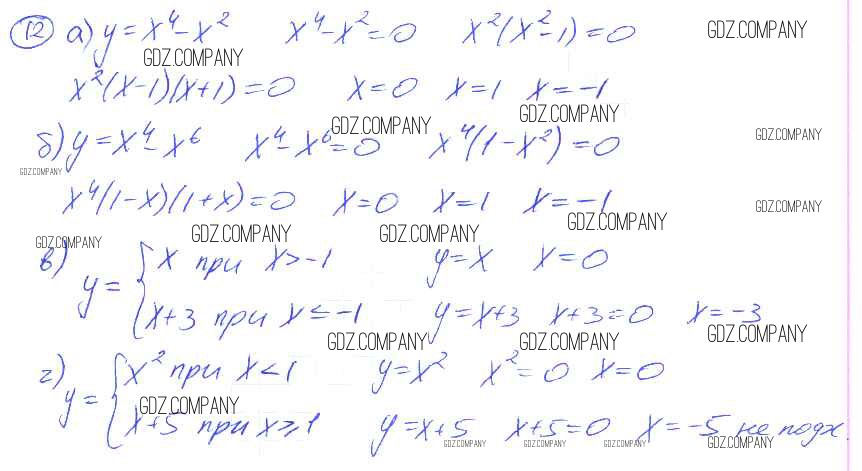 12 а) y = x⁴ - x² x⁴ - x² = 0 x²(x² - 1) = 0 GDZ.COMPANY
GDZ.COMPANY
x²(x-1)(x+1) = 0 x = 0 x = 1 x = -1
GDZ.COMPANY
GDZ.COMPANY
б) y = x⁴ - x⁶ x⁴ - x⁶ = 0 x⁴(1 - x²) = 0 GDZ.COMPANY
GDZ.COMPANY
x⁴(1-x)(1+x) = 0 x = 0 x = 1 x = -1 GDZ.COMPANY
GDZ.COMPANY
GDZ.COMPANY GDZ.COMPANY GDZ.COMPANY
в) y = { x при x > -1 y = x x = 0
x+3 при x ≤ -1 y = x+3 x+3 = 0 x = -3
GDZ.COMPANY GDZ.COMPANY GDZ.COMPANY
г) y = { x² при x < 1 y = x² x² = 0 x = 0
GDZ.COMPANY
x+5 при x ≥ 1 y = x+5 x+5 = 0 x = -5 не подх.
GDZ.COMPANY GDZ.COMPANY GDZ.COMPANY GDZ.COMPANY